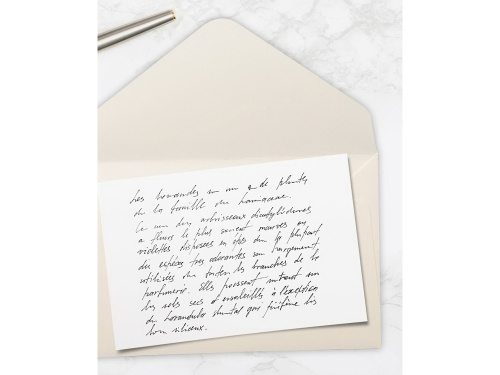 Les lavandes
de la famille des lamiacées.
Ce sont des arbrisseaux dicotylédones
à fleurs le plus souvent mauves ou
violettes disposées en épis dont la plupart
des espèces très odorantes sont largement
utilisées dans toutes les branches de la
parfumerie. Elles poussent surtout sur
les sols secs et ensoleillés à l'exception
qui préfère les
siliceux.